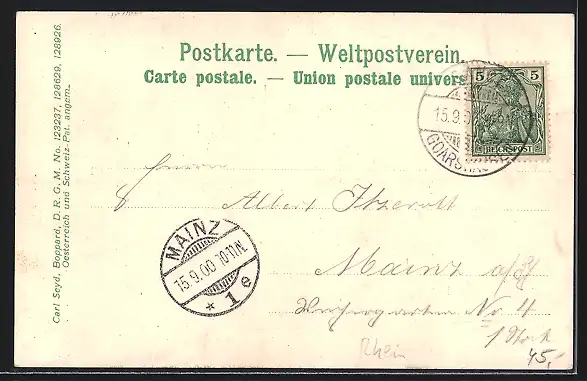 Postkarte. — Weltpostverein.
Carte postale. — Union postale univers
5 5
REICHSPOST
15.9.0
GOARSHAUSEN
Herrn
Albert
Mainz a/Rh
No 4
1 Stock
MAINZ
15.9.00 10-11N.
* 1 e
Rhein
45,-
Carl Seyd, Boppard, D. R. G. M. No. 123237, 128629, 128926.
Oesterreich und Schweiz-Pat. angem.